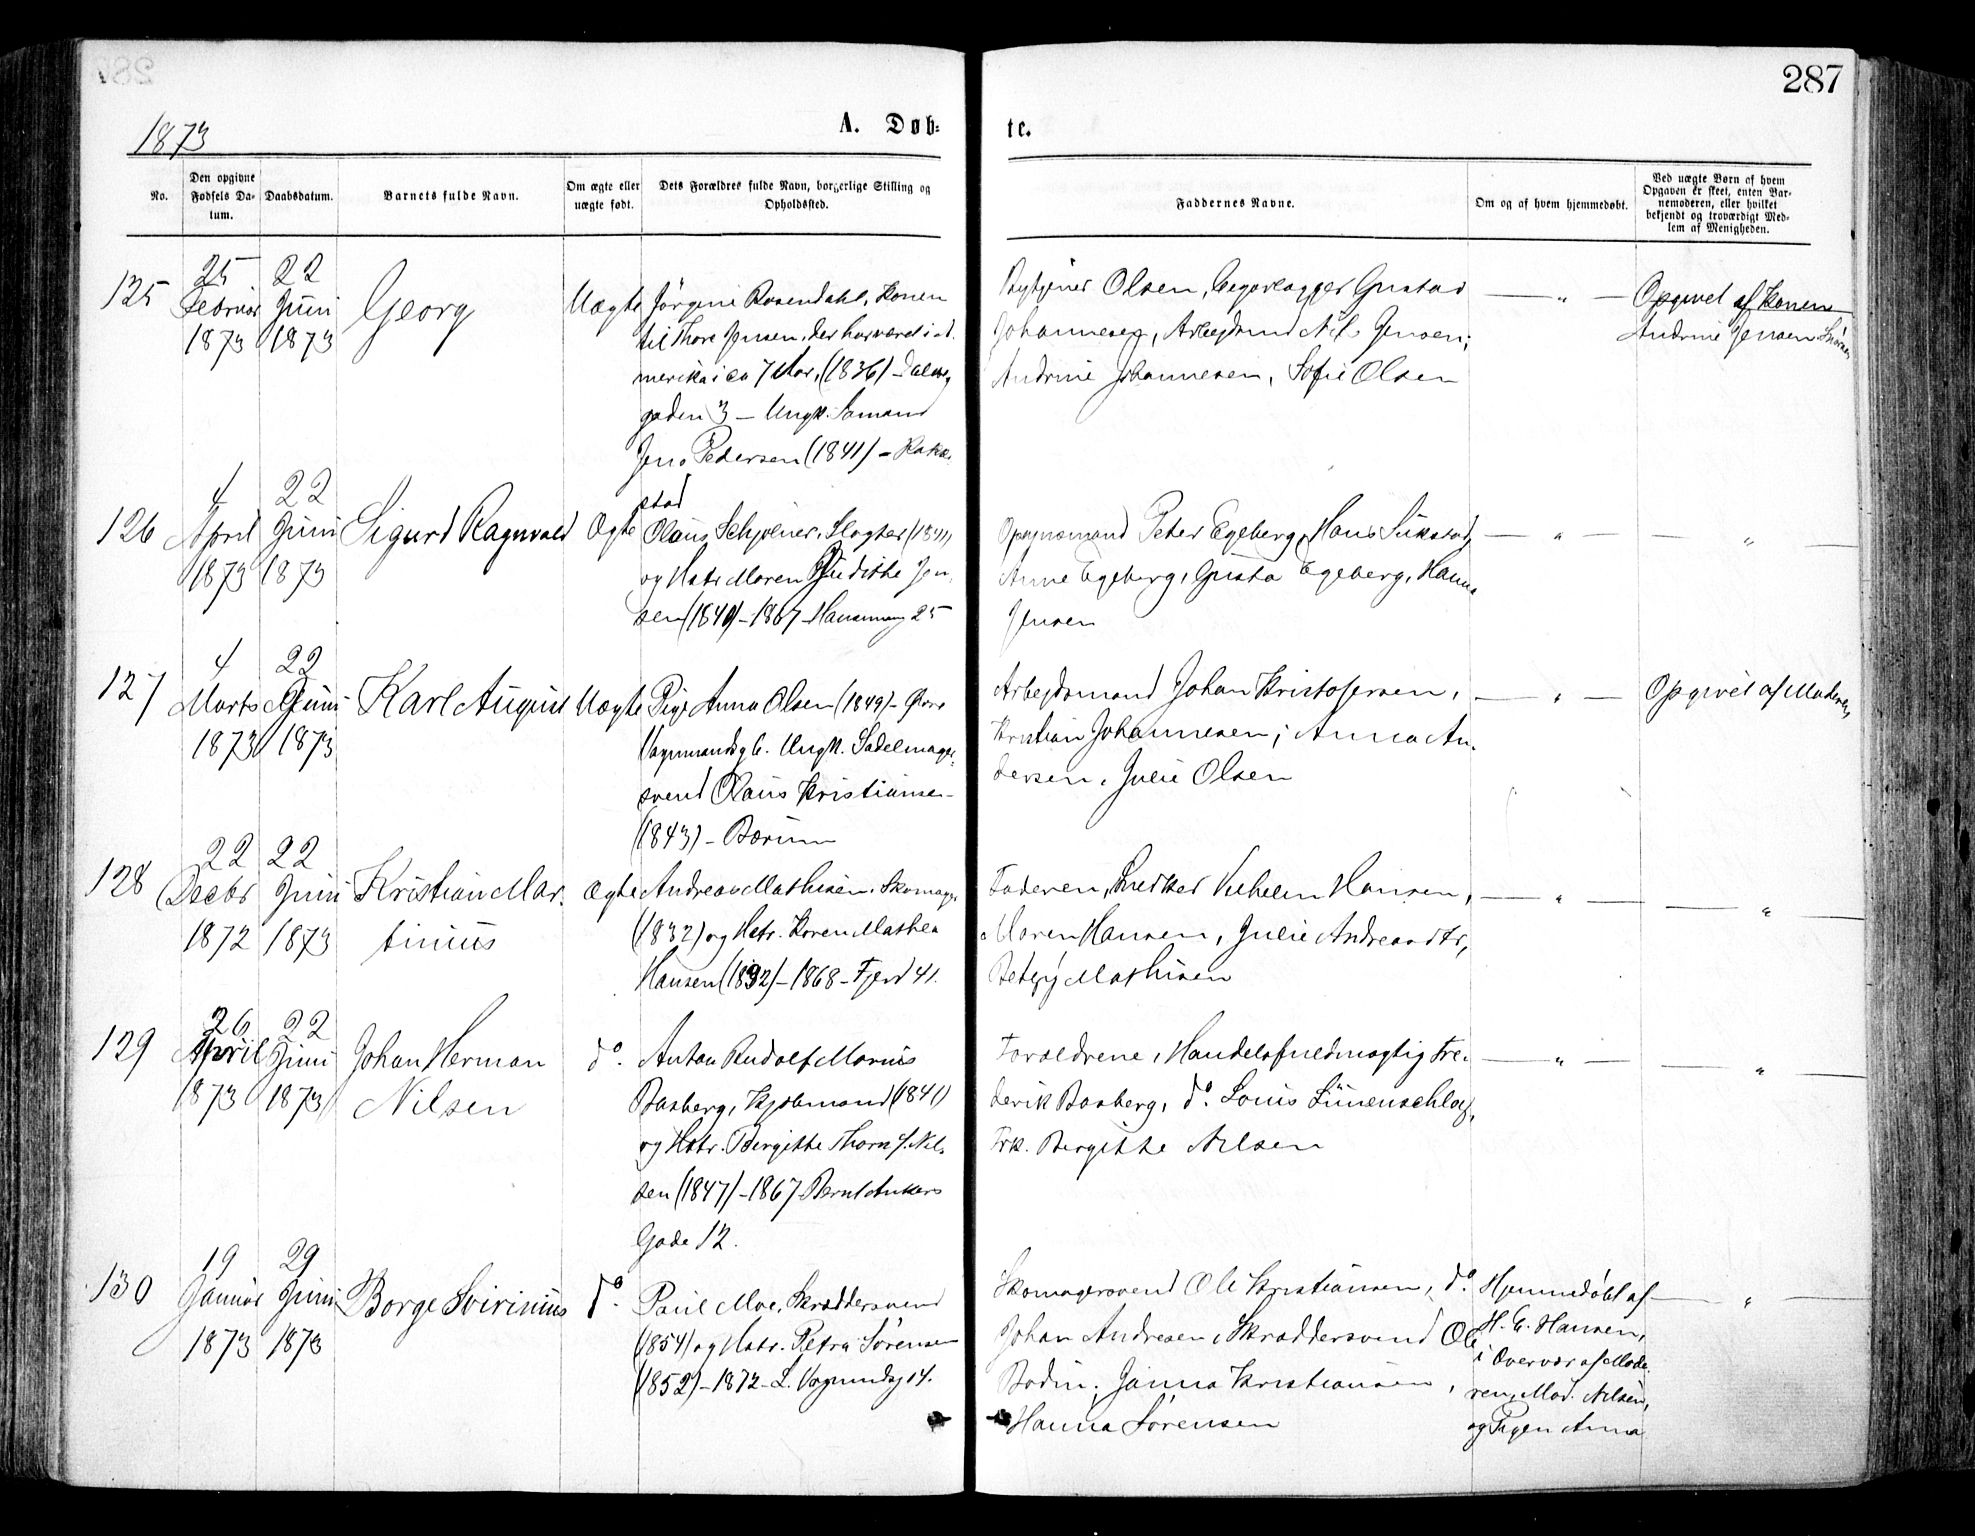 287
1873
A. Døb-
te.
No.
Den opgivne
Fødsels Da-
tum.
Daabsdatum.
Barnets fulde Navn.
Om ægte eller
uægte født.
Dets Forældres fulde Navn, borgerlige Stilling og
Opholdssted.
Faddernes Navne.
Om og af hvem hjemmedøbt.
Ved uægte Børn af hvem
Opgaven er skeet, enten Bar-
nemoderen, eller hvilket
bekjendt og troværdigt Med-
lem af Menigheden.
125
25
Februar
1873
22
Juni
1873
Georg
Uægte
Jørgine Rosendahl, Konen
til Thore Jensen, der har været i A-
merika i ca 7 Aar, (1836) -
gaden 3 - Ungk. Sømand
Jens Pedersen (1841) -
stad
Olsen, Gustav
Johannesen, Arbejdsmd Nils Jensen;
Andrine Johannesen, Sofie Olsen
— " —
Opgivet af Konen
Andrine Jensen
126
4
April
1873
22
Juni
1873
Sigurd Ragnvald
Ægte
Olaus Schjølner, Slagter (1841)
og Hstr Maren Judithe Jen-
sen (1840) - 1867 - Hausmansg 25
Opsynsmand Peter Egeberg, Hans
Anne Egeberg, Gusta Egeberg, Hanna
Jensen
— " —
— " —
127
4
Marts
1873
22
Juni
1873
Karl August
Uægte
Pige Anna Olsen (1849) - Store
Vognmandsg 6. Ungk. Sadelmager-
svend Olaus Kristiansen -
(1843) - Bærum
Arbejdsmand Johan Kristofersen,
Kristian Johannesen; Anna An-
dersen, Julie Olsen
— " —
Opgivet af Moderen
128
22
Decbr
1872
22
Juni
1873
Kristian Mar-
tinius
Ægte
Andreas Mathisen, Skomager
(1832) og Hstr. Karen Mathea
Hansen (1832) - 1868 - Fjerd 41.
Faderen, Snedker Vilhelm Hansen,
Maren Hansen, Julie Andreasdtr,
Betzy Mathisen
— " —
— " —
129
26
April
1873
22
Juni
1873
Johan Herman
Nilsen
do.
Anton Rudolf Marius
Basberg, Kjøbmand (1841)
og Hstr. Bergitte Thora f. Nil-
sen (1847) - 1867 Bernt Ankers
Gade 12.
Forældrene, Handelsfuldmægtig Fre-
derik Basberg, do. Louis Linnenschloss,
Frk. Bergitte Nilsen
— " —
— " —
130
19
Januar
1873
29
Juni
1873
Borge Sivirinius
do.
Paul Moe, Skræddersvend
(1854) og Hstr. Petra Sørensen
(1852) - 1872 - L. Vognmdsg 14.
Skomagersvend Ole Kristiansen, do.
Johan Andresen, Skræddersvend Ole
Bodin; Janna Kristiansen,
Hanna Sørensen
Hjemmedøbt af
H. E. Hansen,
i Overvær af Mode-
ren, Mad. Nilsen,
og Pigen Anna
— " —